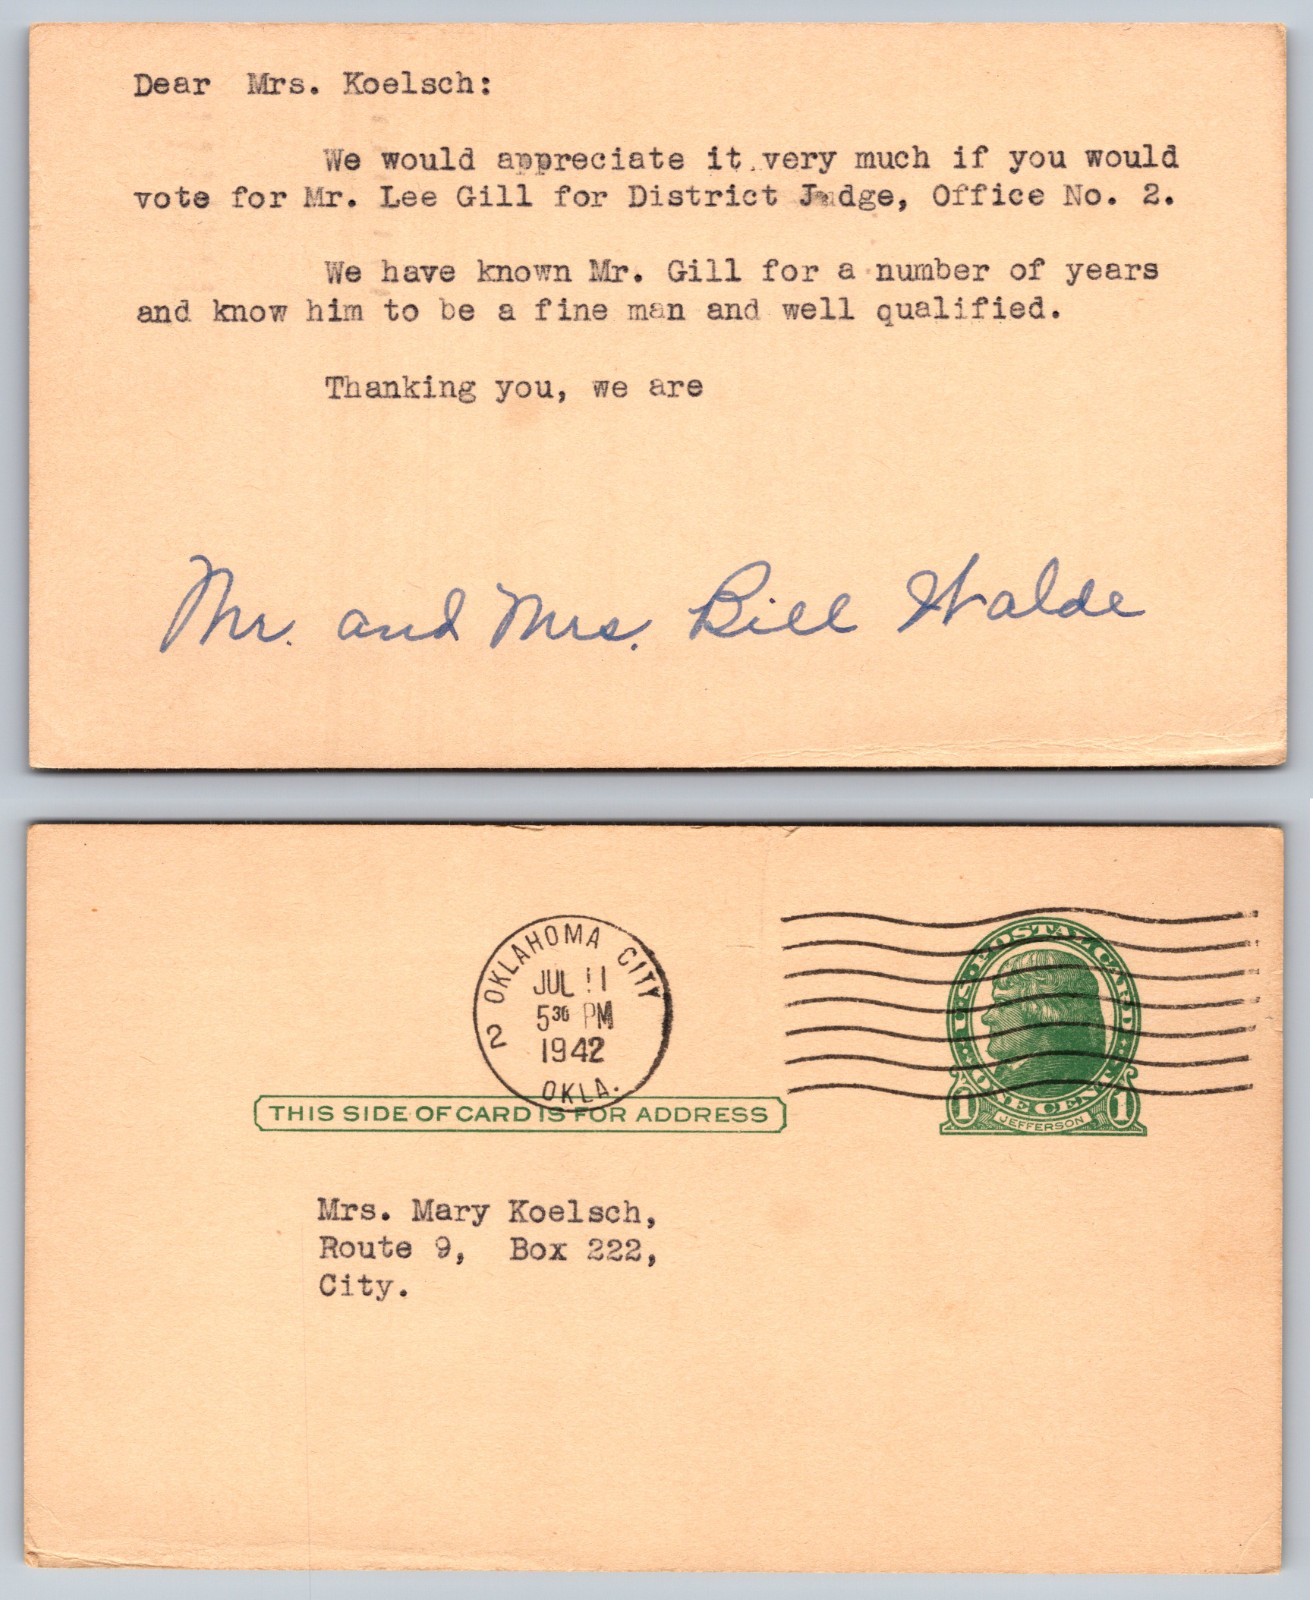 Dear Mrs. Koelsch:
We would appreciate it very much if you would
vote for Mr. Lee Gill for District Judge, Office No. 2.
We have known Mr. Gill for a number of years
and know him to be a fine man and well qualified.
Thanking you, we are
Mr. and Mrs. Bill Walde
2 OKLAHOMA CITY
JUL 11
5 30 PM
1942
OKLA.
U.S. POSTAL CARD
ONE CENT
1 JEFFERSON 1
THIS SIDE OF CARD IS FOR ADDRESS
Mrs. Mary Koelsch,
Route 9, Box 222,
City.